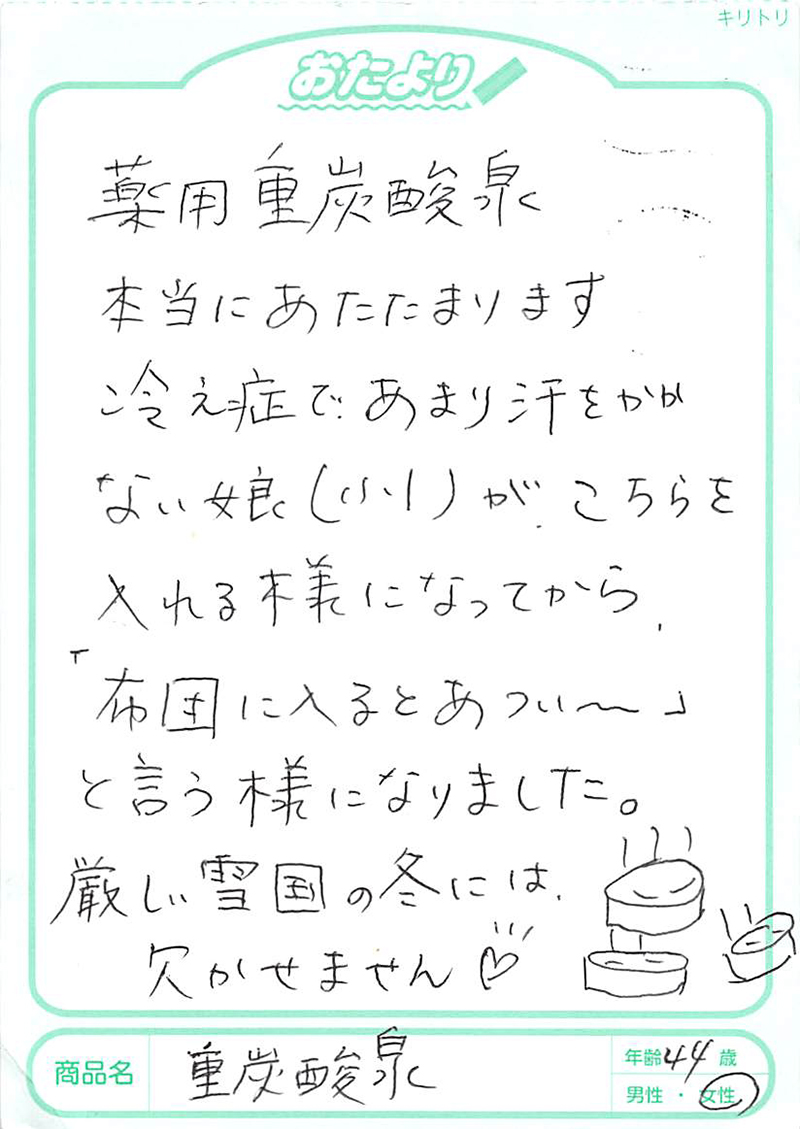 キリトリ
おたより
薬用重炭酸泉
本当にあたたまります
冷え症で、あまり汗をかか
ない娘(小1)が、こちらを
入れる様になってから、
「布団に入るとあつい〜」
と言う様になりました。
厳しい雪国の冬には、
欠かせません♡
商品名 重炭酸泉
年齢 44 歳
男性・女性